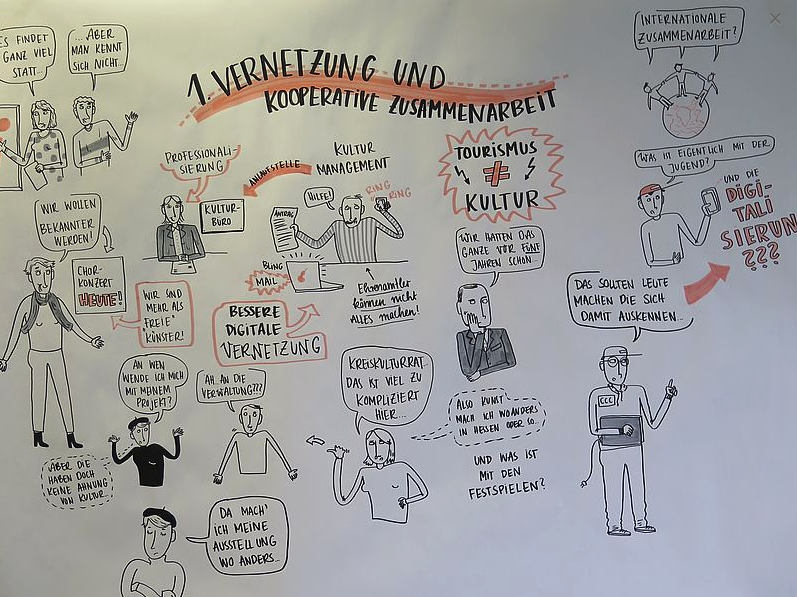 ES FINDET
GANZ VIEL
STATT...
...ABER
MAN KENNT
SICH NICHT...
1. VERNETZUNG UND
KOOPERATIVE ZUSAMMENARBEIT
INTERNATIONALE
ZUSAMMENARBEIT?
PROFESSIONALI-
SIERUNG
ANLAUFSTELLE
KULTUR
MANAGEMENT
KULTUR-
BÜRO
ANTRAG
HILFE!
RING
RING
BLING
MAIL
Ehrenamtler
können nicht
ALLES machen!
TOURISMUS
≠
KULTUR
WAS IST EIGENTLICH MIT DER
JUGEND?
UND DIE
DIGI-
TALI
SIERUN
???
WIR WOLLEN
BEKANNTER
WERDEN!
CHOR-
KONZERT
HEUTE!
WIR SIND
MEHR ALS
"FREIE"
KÜNSTLER!
BESSERE
DIGITALE
VERNETZUNG
WIR HATTEN DAS
GANZE VOR FÜNF
JAHREN SCHON...
DAS SOLLTEN LEUTE
MACHEN DIE SICH
DAMIT AUSKENNEN...
CCC
AN WEN
WENDE ICH MICH
MIT MEINEM
PROJEKT?
AH AN DIE
VERWALTUNG???
ABER DIE
HABEN DOCH
KEINE AHNUNG
VON KULTUR...
KREISKULTURRAT...
DAS IST VIEL ZU
KOMPLIZIERT
HIER...
ALSO KUNST
MACH ICH WOANDERS
IN HESSEN ODER SO...
UND WAS IST
MIT DEN
FESTSPIELEN?
DA MACH'
ICH MEINE
AUSSTELLUNG
WO ANDERS...